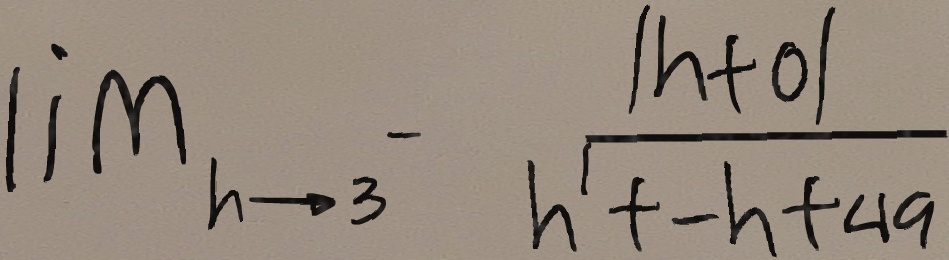 \lim_{h \to 3^-} \frac{|h+0|}{h^1+-h+49}